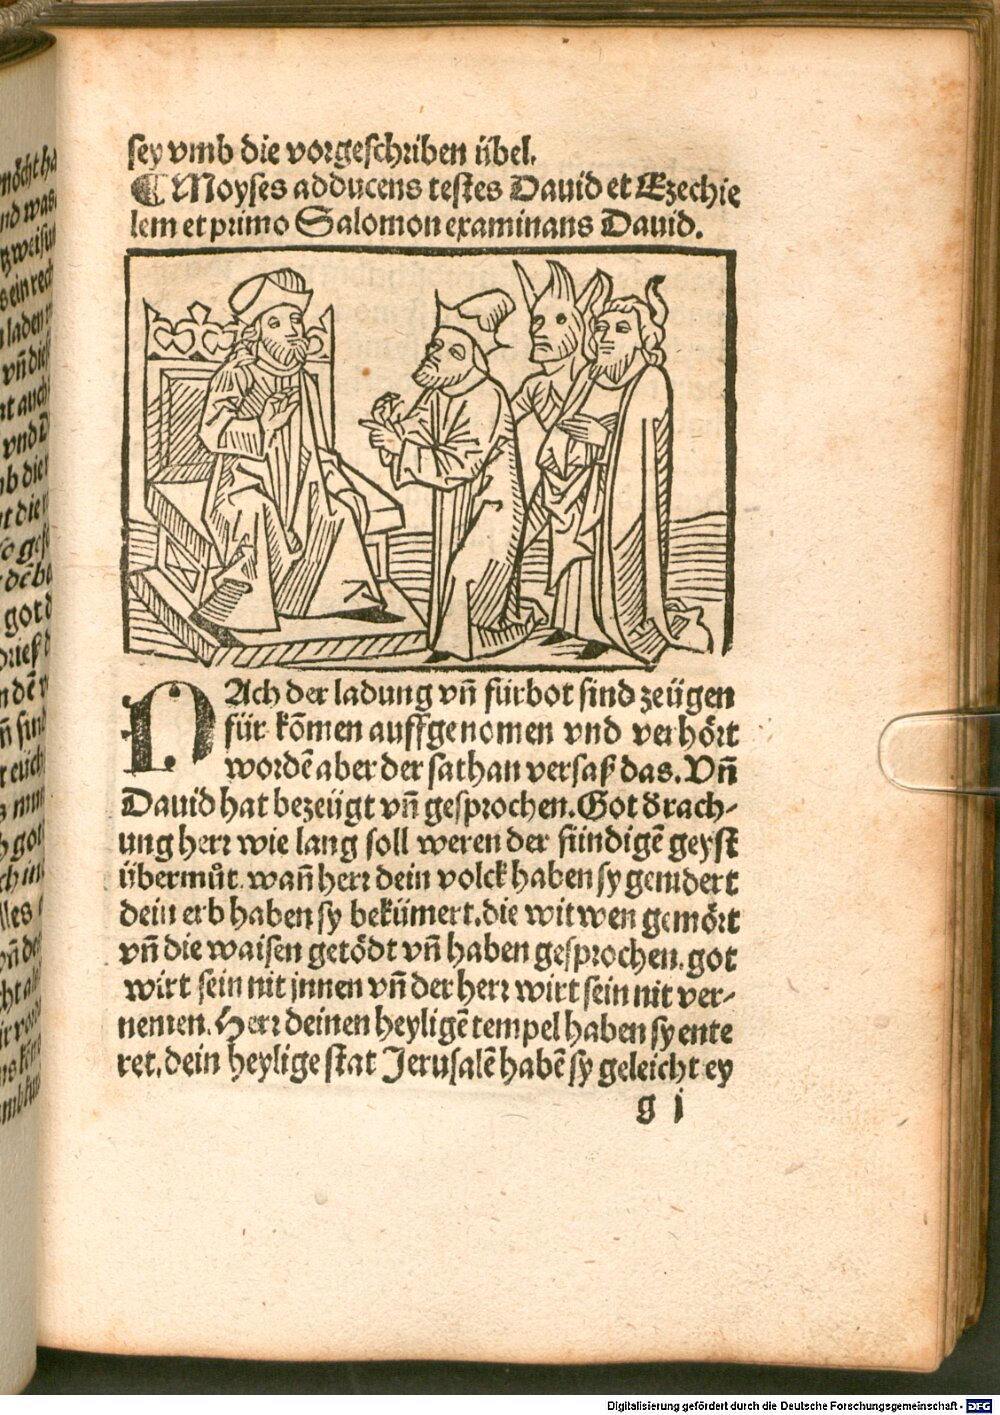 sey vmb die vorgeschriben übel.
¶ Moyses adducens testes Dauid et Ezechie
lem et primo Salomon examinans Dauid.
NAch der ladung vñ fürbot sind zeügen
für kōmen auffgenomen vnd verhört
wordē aber der sathan versaß das. Vñ
Dauid hat bezeügt vñ gesprochen. Got d rach-
ung herr wie lang soll weren der sündigē geyst
übermůt. wañ herr dein volck haben sy gemdert
dein erb haben sy bekümert. die witwen gemört
vñ die waisen getödt vñ haben gesprochen. got
wirt sein nit jnnen vñ der herr wirt sein nit ver-
nemen. Herr deinen heyligē tempel haben sy ente
ret. dein heylige stat Jerusalē habē sy geleicht ey
g j
Digitalisierung gefördert durch die Deutsche Forschungsgemeinschaft - DFG